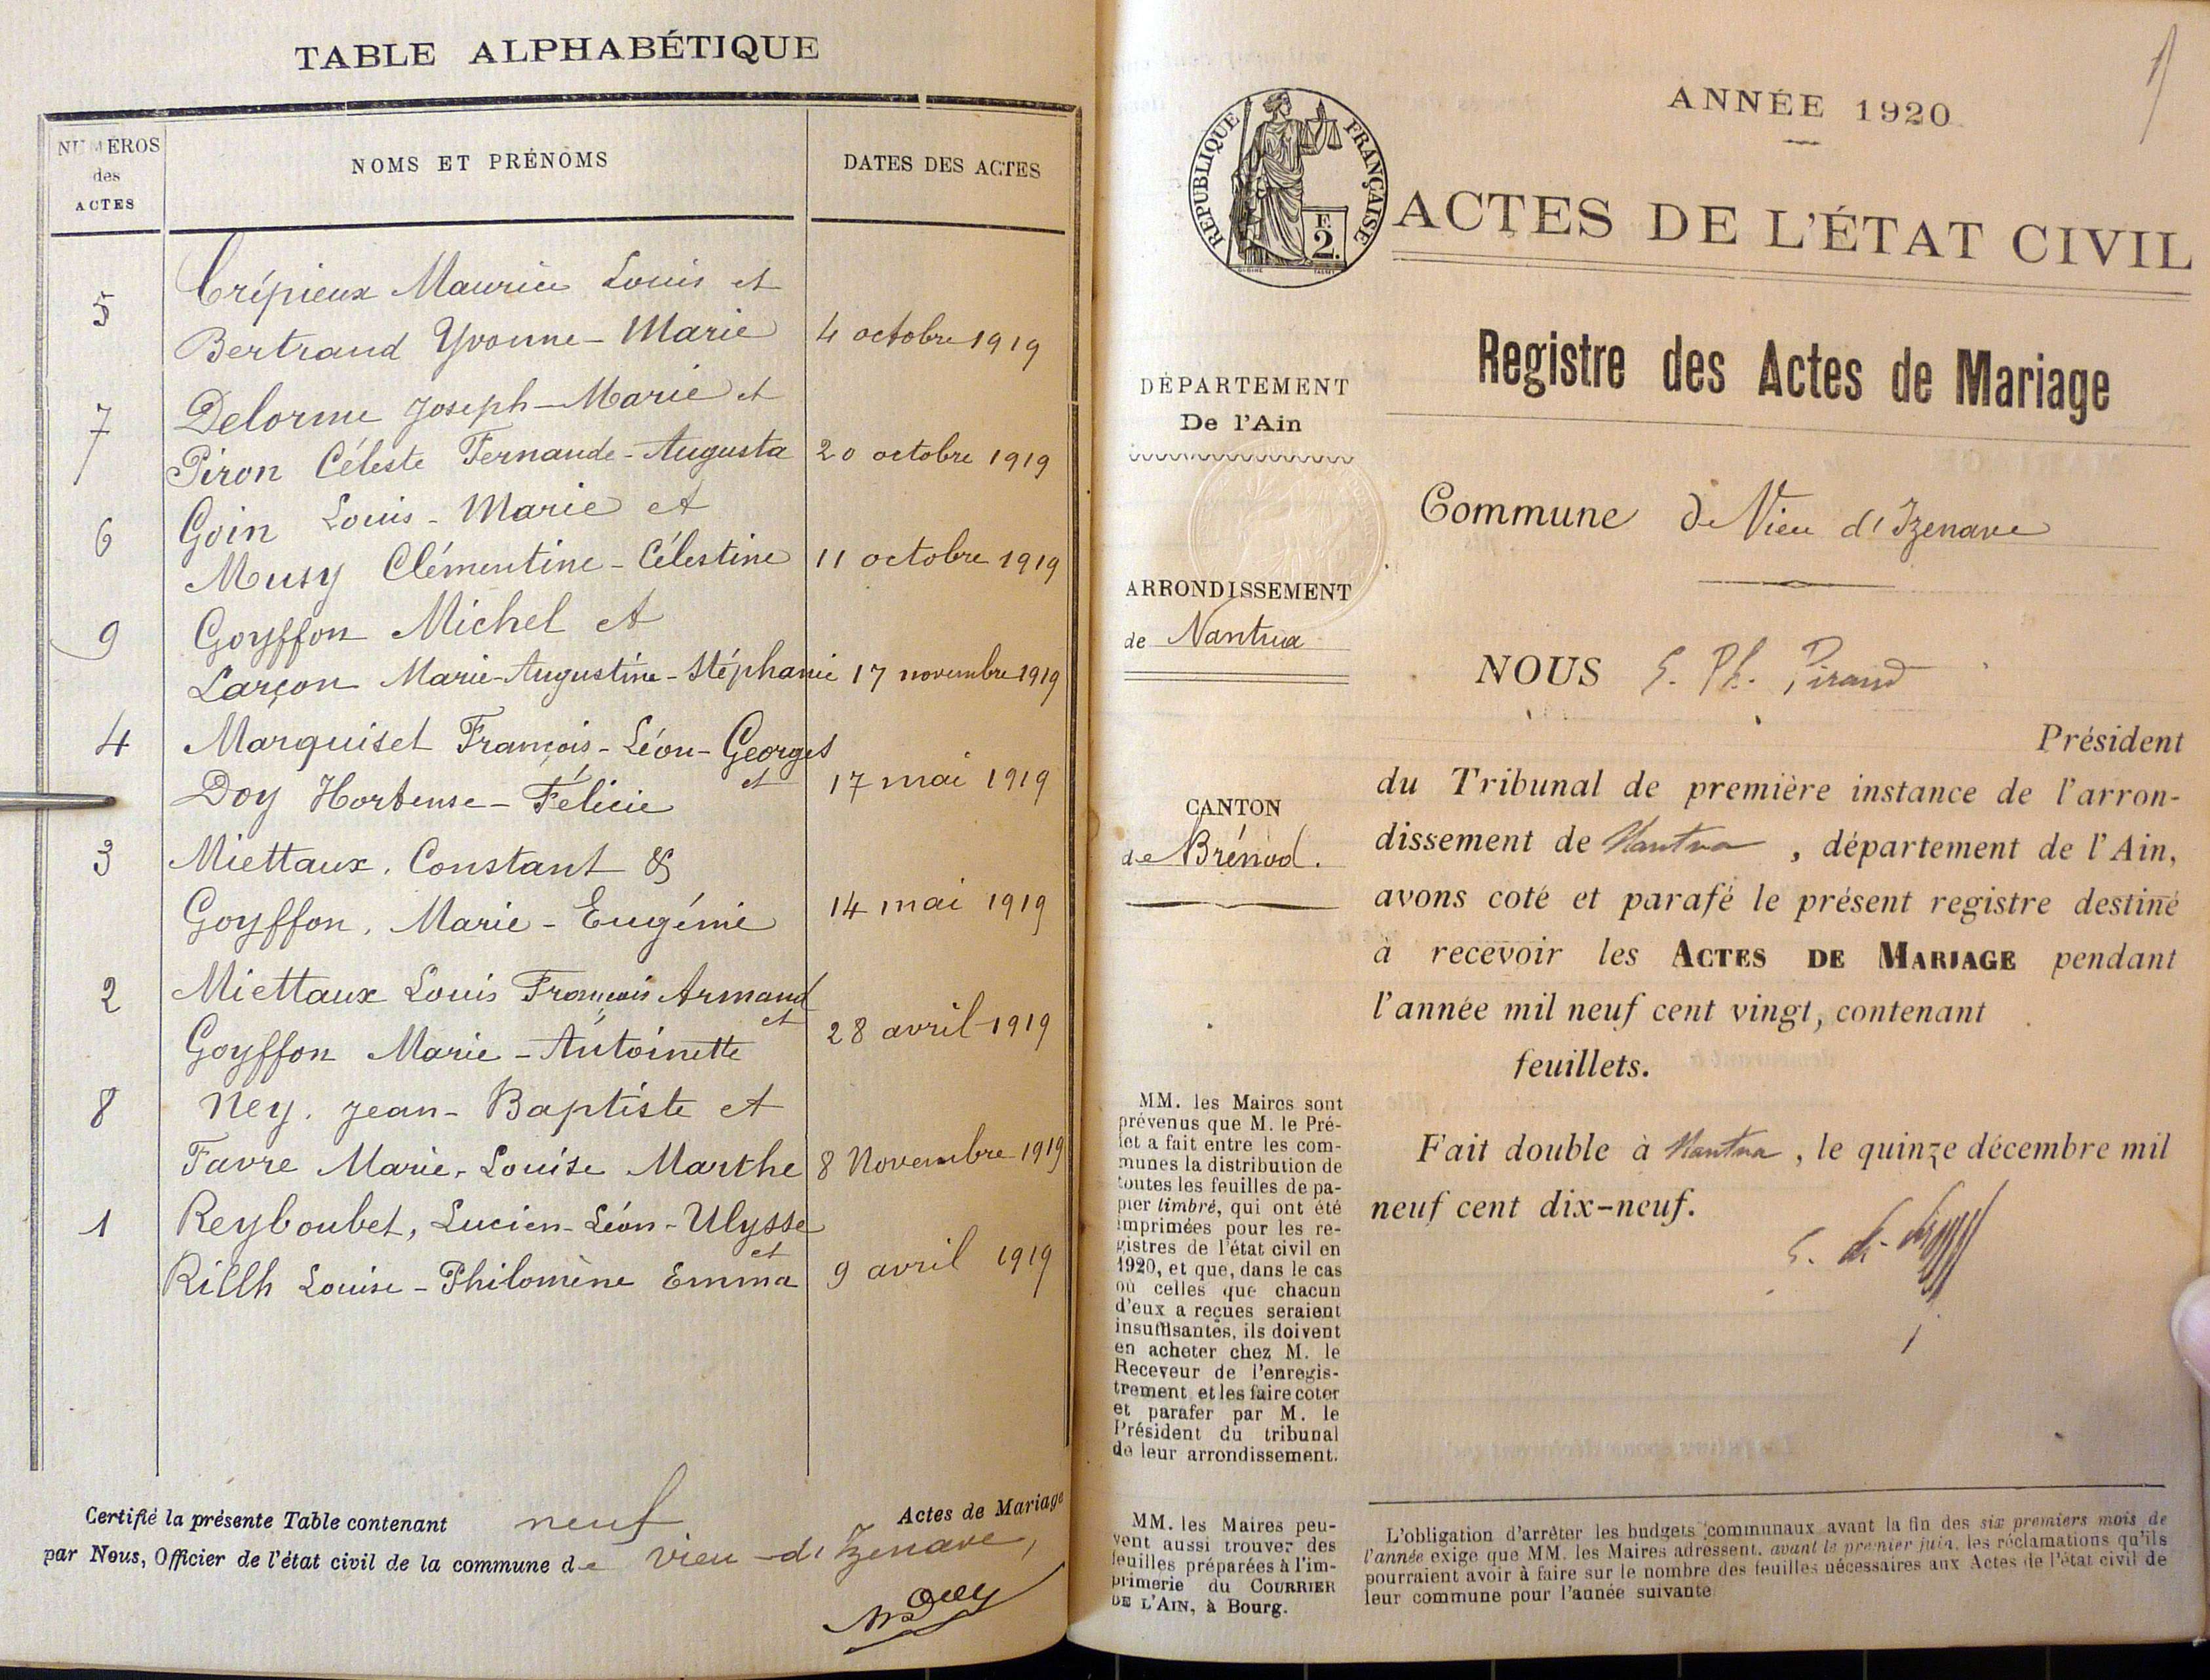 TABLE ALPHABÉTIQUE
NUMÉROS
des
ACTES
NOMS ET PRÉNOMS
DATES DES ACTES
5
Crépieux Maurice Louis et
Bertrand Yvonne-Marie
4 octobre 1919
7
Delorme Joseph-Marie et
Piron Céleste Fernande-Augusta
20 octobre 1919
6
Goin Louis-Marie et
Musy Clémentine-Célestine
11 octobre 1919
9
Goyffon Michel et
Larçon Marie-Augustine-Stéphanie
17 novembre 1919
4
Marquiset François-Léon-Georges
et
Doy Hortense-Félicie
17 mai 1919
3
Miettaux, Constant &
Goyffon, Marie-Eugénie
14 mai 1919
2
Miettaux Louis François Armand
et
Goyffon Marie-Antoinette
28 avril 1919
8
Ney, Jean-Baptiste et
Favre Marie-Louise Marthe
8 Novembre 1919
1
Reyboubet, Lucien-Léon-Ulysse
et
Rillh Louise-Philomène Emma
9 avril 1919
Certifié la présente Table contenant neuf Actes de Mariage
par Nous, Officier de l'état civil de la commune de Vieu-d'Izenave,
ANNÉE 1920
RÉPUBLIQUE FRANÇAISE
F.
2.
ACTES DE L'ÉTAT CIVIL
Registre des Actes de Mariage
DÉPARTEMENT
De l'Ain
Commune de Vieu d'Izenave
ARRONDISSEMENT
de Nantua
NOUS
Président
du Tribunal de première instance de l'arron-
dissement de Nantua, département de l'Ain,
avons coté et parafé le présent registre destiné
à recevoir les ACTES DE MARIAGE pendant
l'année mil neuf cent vingt, contenant
feuillets.
CANTON
de Brénod.
Fait double à Nantua, le quinze décembre mil
neuf cent dix-neuf.
MM. les Maires sont
prévenus que M. le Pré-
fet a fait entre les com-
munes la distribution de
toutes les feuilles de pa-
pier timbré, qui ont été
imprimées pour les re-
gistres de l'état civil en
1920, et que, dans le cas
où celles que chacun
d'eux a reçues seraient
insuffisantes, ils doivent
en acheter chez M. le
Receveur de l'enregis-
trement et les faire coter
et parafer par M. le
Président du tribunal
de leur arrondissement.
MM. les Maires peu-
vent aussi trouver des
feuilles préparées à l'im-
primerie du COURRIER
DE L'AIN, à Bourg.
L'obligation d'arrêter les budgets communaux avant la fin des six premiers mois de
l'année exige que MM. les Maires adressent, avant le premier juin, les réclamations qu'ils
pourraient avoir à faire sur le nombre des feuilles nécessaires aux Actes de l'état civil de
leur commune pour l'année suivante